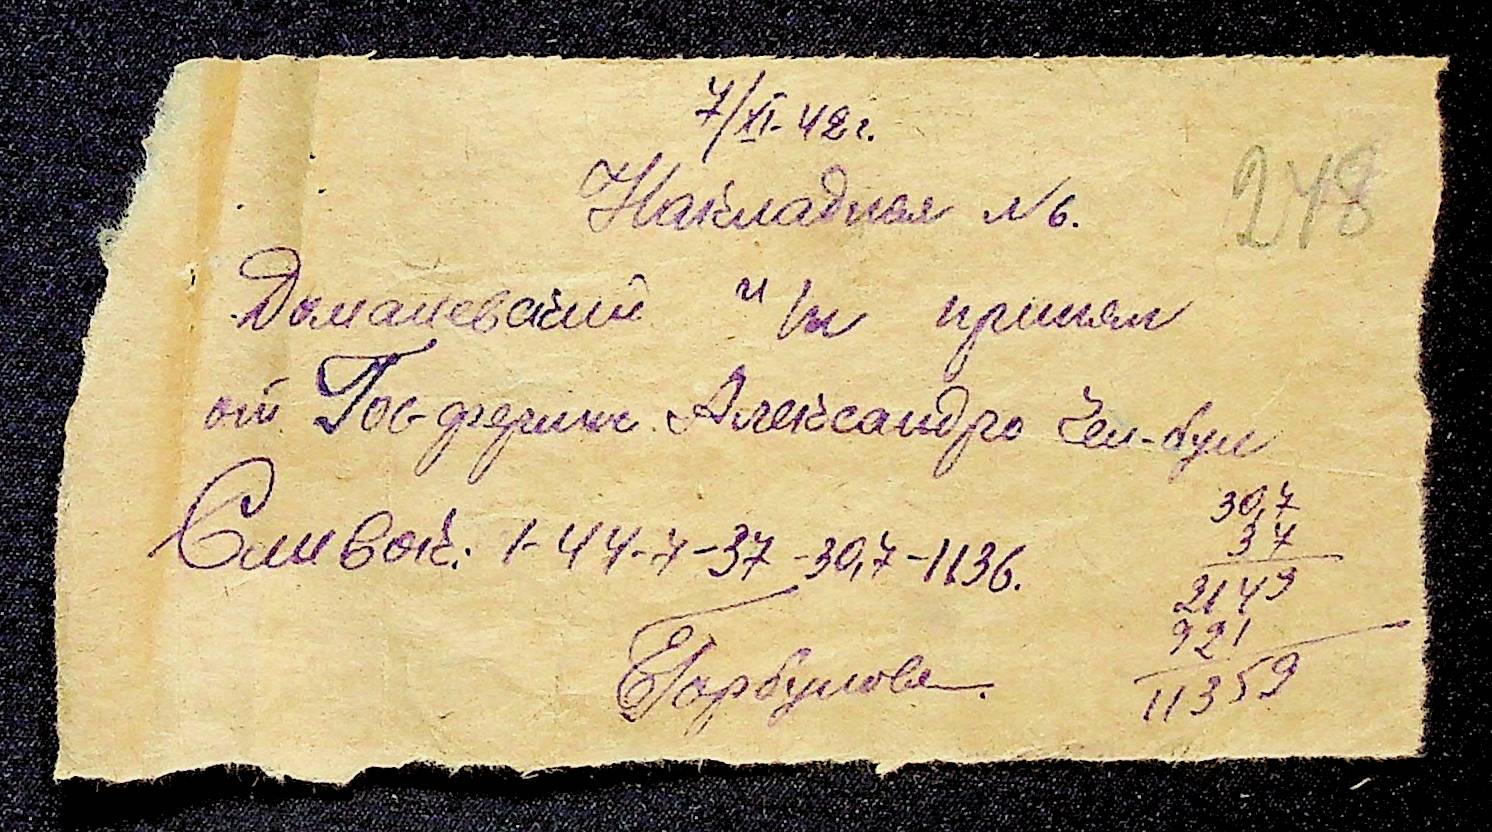 7/XI-42г.
Накладная № 6.
248
Доманевский м/з принял
от Гос-фермы Александро
Сливок: 1-44-7-37-30,7-1136.
30,7
37
2149
921
11359
Горбунова.